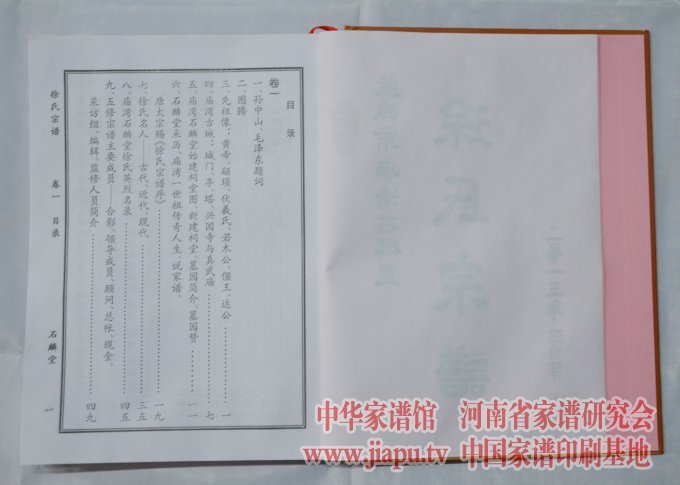 目录
卷一
一、孙中山、毛泽东题词
二、图腾
三、先祖像：黄帝、颛顼、伏羲氏、若木公、偃王、达公……一
四、庙湾古城：城门、亭、塔、兴国寺与真武庙……七
五、庙湾石麟堂始建祠堂图、新建祠堂、墓园简介、墓园赞……一一
六、石麟堂来历、庙湾一世祖传奇人生、说家谱、
唐太宗赐《徐氏宗谱序》……一九
七、徐氏名人——古代、近代、现代……三五
八、庙湾石麟堂徐氏英烈名录……四五
九、五修宗谱主要成员——合影、领导成员、顾问、总帐、现金、
采访组、编辑、监修人员简介……四九
徐氏宗谱
卷一 目录
石麟堂
一
徐氏宗谱
中华家谱馆 河南省家谱研究会
www.jiapu.tv 中国家谱印刷基地